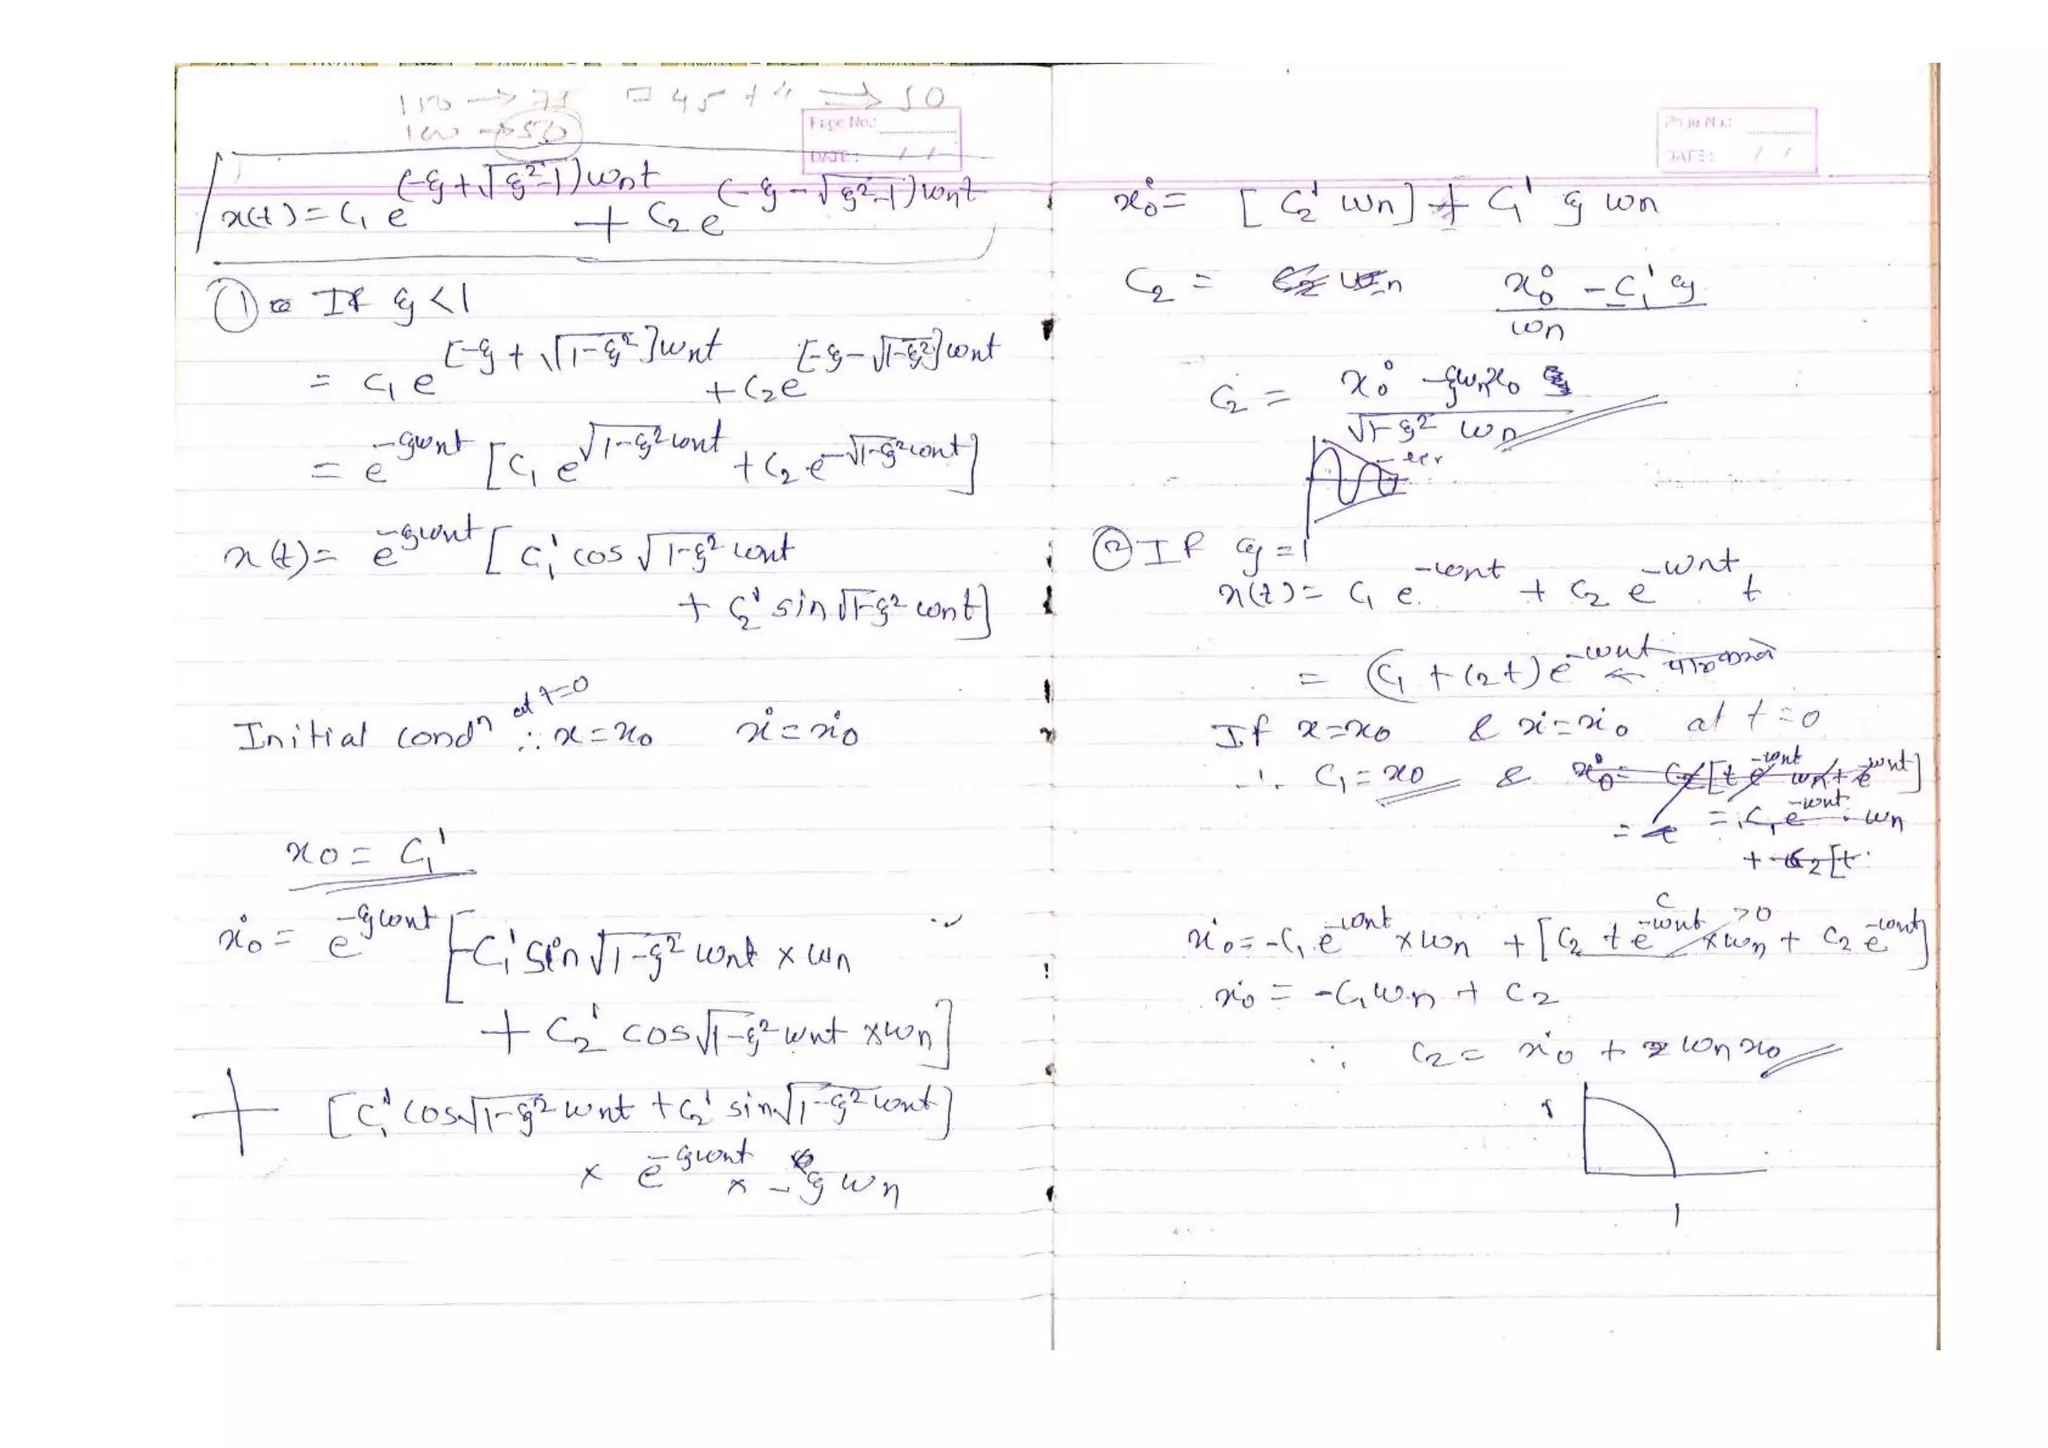 150 → 75 = 45 + 4 → 50
100 → 50
Page No.:
DATE: / /
x(t) = C₁ e^(-ξ+√ξ²-1)ωnt + C₂ e^(-ξ-√ξ²-1)ωnt
① If ξ < 1
= C₁ e^[-ξ+√1-ξ²]ωnt + C₂ e^[-ξ-√1-ξ²]ωnt
= e^-ξωnt [C₁ e^√1-ξ² ωnt + C₂ e^-√1-ξ² ωnt]
x(t) = e^-ξωnt [C₁' cos √1-ξ² ωnt
+ C₂' sin √1-ξ² ωnt]
Initial condⁿ at t=0 ∴ x = x₀ ẋ = ẋ₀
x₀ = C₁'
ẋ₀ = e^-ξωnt [-C₁' sin √1-ξ² ωnt × ωn
+ C₂' cos √1-ξ² ωnt × ωn]
+ [C₁' cos √1-ξ² ωnt + C₂' sin √1-ξ² ωnt]
× e^-ξωnt × -ξ ωn
DATE: / /
ẋ₀ = [C₂' ωn] + C₁' ξ ωn
C₂ = ẋ₀ - C₁' ξ / ωn
C₂ = ẋ₀ - ξωn x₀ / √1-ξ² ωn
② If ξ = 1
x(t) = C₁ e^-ωnt + C₂ e^-ωnt t
= (C₁ + C₂t) e^-ωnt ←
If x = x₀ & ẋ = ẋ₀ at t = 0
∴ C₁ = x₀ & ẋ₀ = C₂ [t e^-ωnt ωn + e^-ωnt]
= C₁ e^-ωnt . ωn
+ C₂ [t
ẋ₀ = -C₁ e^-ωnt × ωn + [C₂ t e^-ωnt × ωn → 0 + C₂ e^-ωnt]
ẋ₀ = -C₁ ωn + C₂
∴ C₂ = ẋ₀ + ωn x₀
1